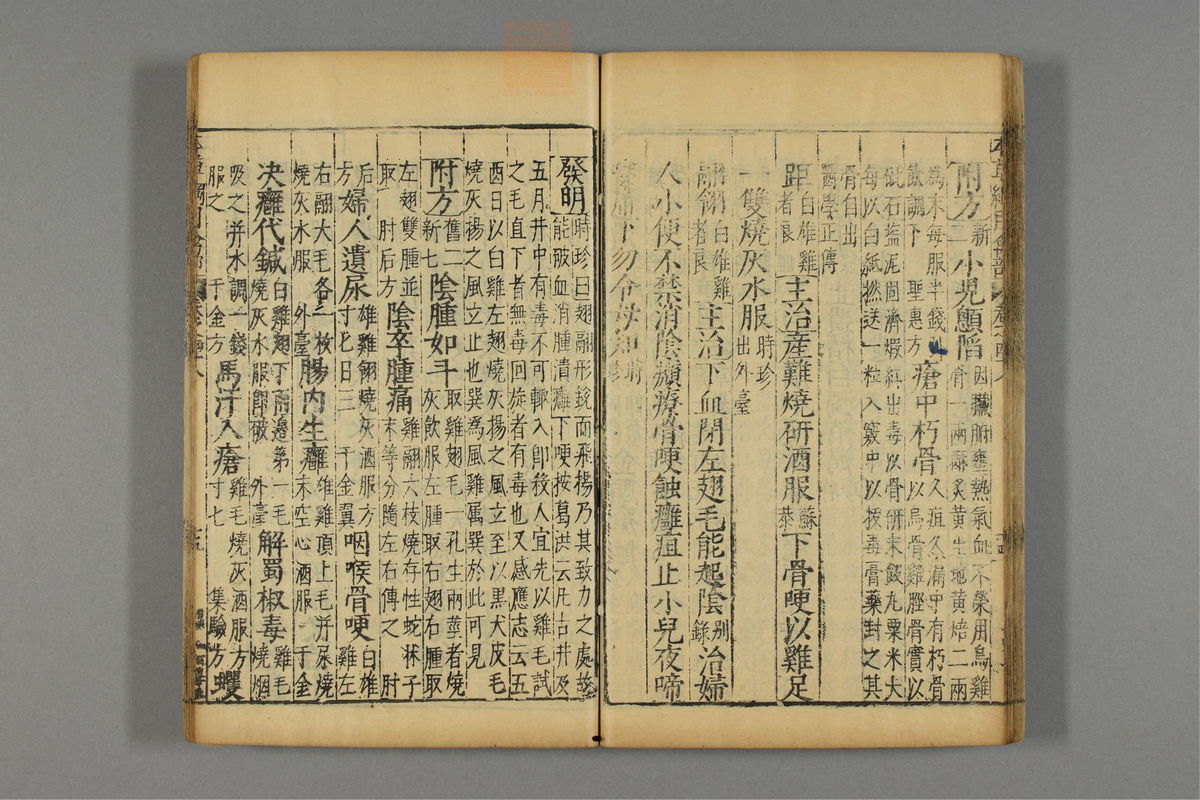 附方新二小兒顖陷因臟腑壅熱氣血不榮用烏雞骨一兩酥炙黃生地黃焙二兩
為末每服半錢飲調下聖惠方瘡中朽骨久疽久漏中有朽骨以烏骨雞脛骨實以
砒石塩泥固濟煆紅出毒以骨研末飯丸粟米大每以白紙撚送一粒入竅中以拔毒膏藥封之其
骨自出醫學正傳
距白雄雞者良主治産難燒研酒服蘇恭下骨哽以雞足
一雙燒灰水服時珍出外臺
翮翎白雄雞者良主治下血閉左翅毛能起陰別錄治婦
人小便不禁消陰㿗療骨哽蝕癰疽止小兒夜啼
安席下勿令母知時珍
發明時珍曰翅翮形銳而飛揚乃其致力之處故能破血消腫潰癰下哽按葛洪云凡古井及
五月井中有毒不可輒入卽殺人宜先以雞毛試之毛直下者無毒回旋者有毒也又感應志云五
酉日以白雞左翅燒灰揚之風立至以黑犬皮毛燒灰揚之風立止也巽為風雞屬巽於此可見
附方舊二新七陰腫如斗取雞翅毛一孔生兩莖者燒灰飲服左腫取右翅右腫取
左翅雙腫並取肘后方陰卒腫痛雞翮六枝燒存性蛇牀子末等分隨左右傅之肘
后方婦人遺尿雄雞翎燒灰酒服方寸匕日三千金翼咽喉骨哽白雄雞左
右翮大毛各一枚燒灰水服外臺腸内生癰雄雞頂上毛并屎燒末空心酒服千金
决癰代鍼白雞翅下兩邊第一毛燒灰水服卽破外臺解蜀椒毒雞毛燒烟
吸之并水調一錢服之千金方馬汗入瘡雞毛燒灰酒服方寸匕集驗方蠼